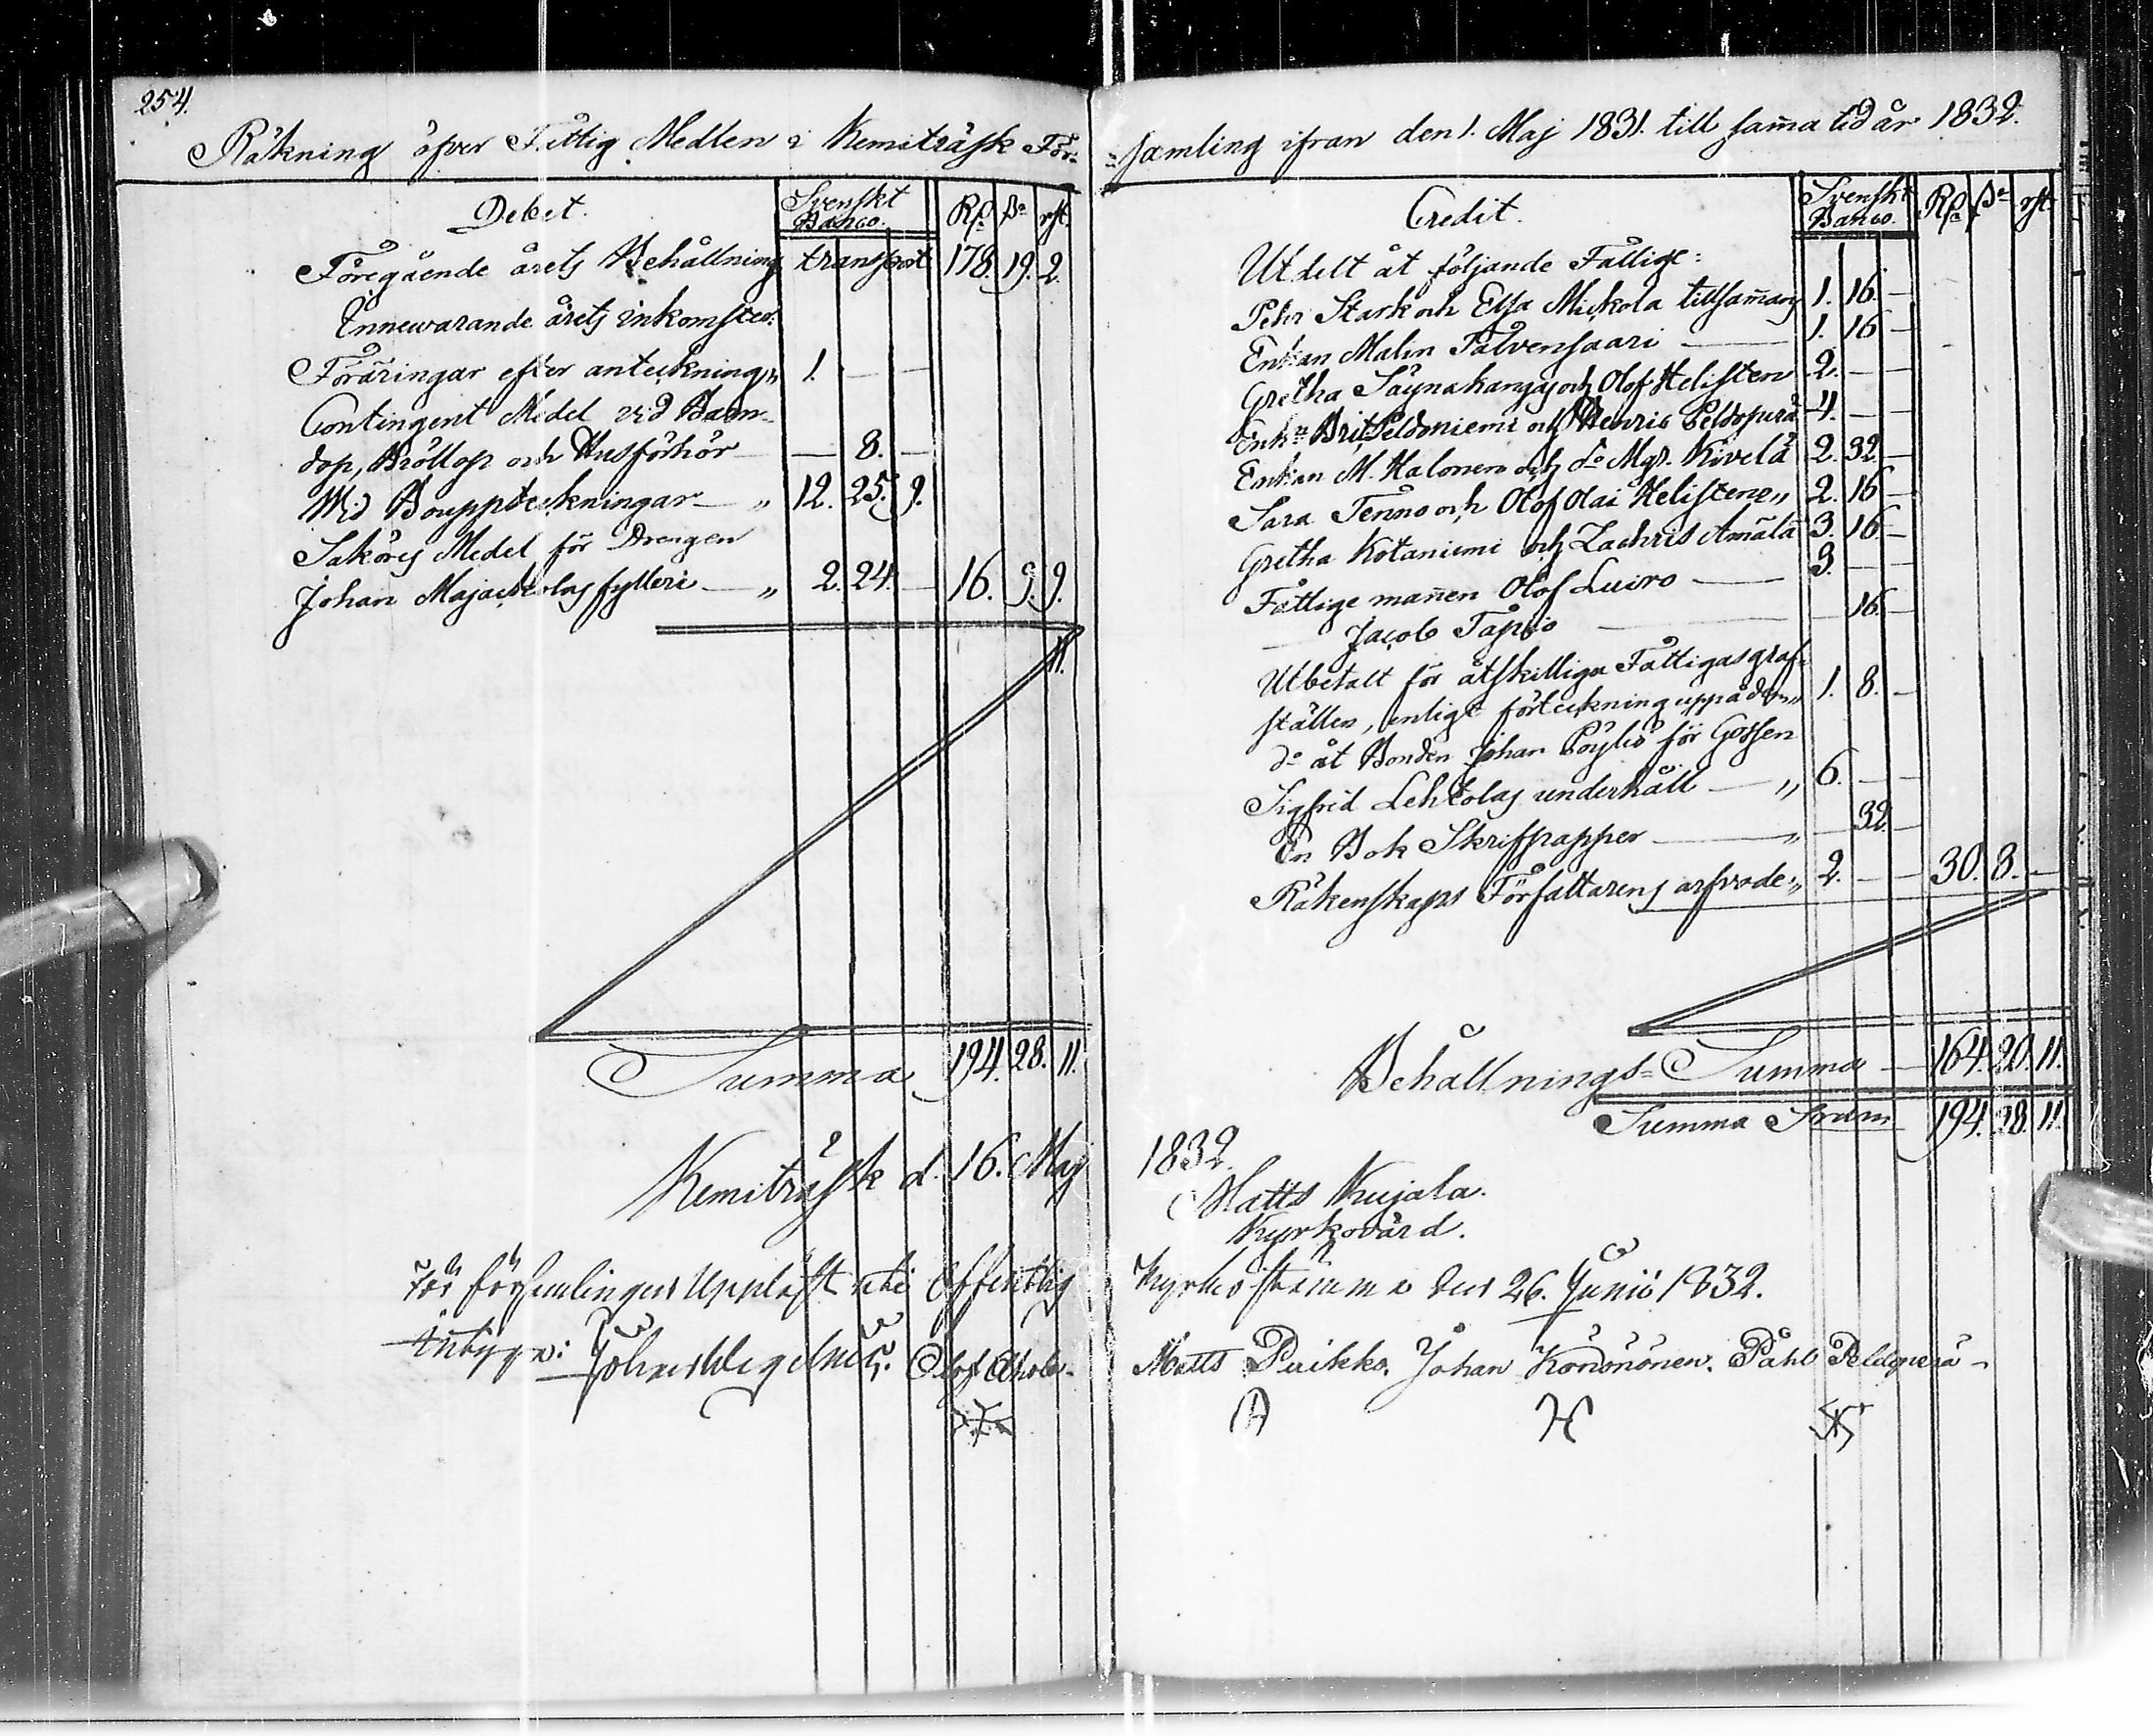 254.
Räkning öfver Fattig Medlen i Kemiträsk För-
Debet. Svenskt Banco. Rd ßr rst.
Föregående årets Behållning transport 178. 19. 2.
Innewarande årets inkomster:
Föräringar efter anteckning „ 1. — —
Contingent Medel vid Barn-
dop, Bröllop och Husförhör — 8. —
Wid Bouppteckningar — „ 12. 25. 9.
Saköres Medel för Drengen
Johan Majavaolas fylleri — „ 2. 24. — 16. 9. 9.
11.
Summa 194. 28. 11.
Kemiträsk d. 16. Maj
För församlingen Uppläst uti Offentlig
intyga: Johan Wegelius. Olof Ahola.
=samling ifran den 1. Maj 1831. till sam̄a tid år 1832.
Credit. Svenskt Banco. Rd ßr rst.
Utdelt åt följande Fattige:
Pehr Stark och Elsa Mickola tillsam̄ans 1. 16. —
Enkan Malin Talvensaari — 1. 16 —
Gretha Säynakangas och Olof Helisten 2. — —
Enkn Brit Peldoniemi och Henric Peldoperä 4. — —
Enkan M. Halonen och do Mgr. Kivelä 2. 32. —
Sara Tenno och Olof Olai Helisten „ 2. 16 —
Gretha Kotaniemi och Zachris Ämälä 3. 16. —
Fattige man̄en Olof Luiro — 3. — —
— Jacob Tapio — — 16. —
Utbetalt för åtskilliga Fattigas graf-
ställen, enligt förteckning uppå dem „ 1. 8. —
do åt Bonden Johan Pöyliö för Gossen
Sigfrid Lehtolas underhåll — „ 6. — —
En Bok Skrifpapper — „ — 32 —
Räkenskaps Författarens arfvode „ 2. — — 30. 8. —
Behållnings=Summa — 164. 20. 11.
Summa Sumr 194. 28. 11.
1832.
Matts Kujala.
Kyrkovärd.
Kyrkostämma den 26. Junii 1832.
Matts Puikko. Johan Kononönen. Påhl Peldoperä